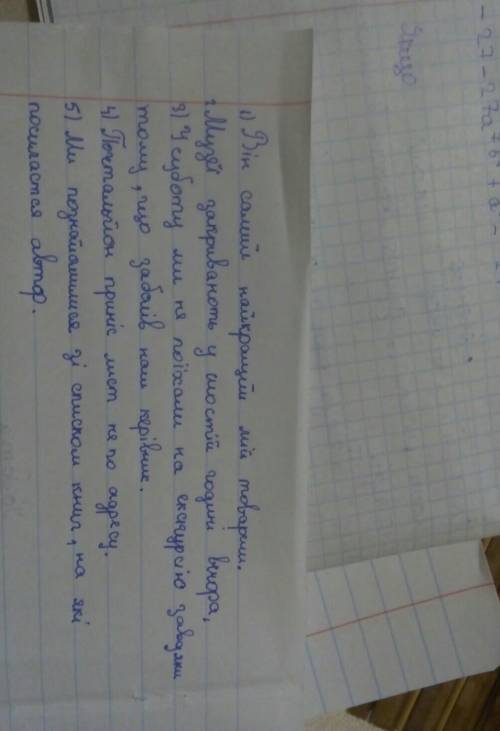 1) Він самий найкращий мій товариш.
2. Музеї закривають у шостій годині вечора,
3) У суботу ми не поїхали на екскурсію завдяки
тому, що забалів нам керівник.
4) Почтальйон приніс лист не по адресу.
5) Ми познайомимся зі списком книг, на які
посилается автор.
Якщо